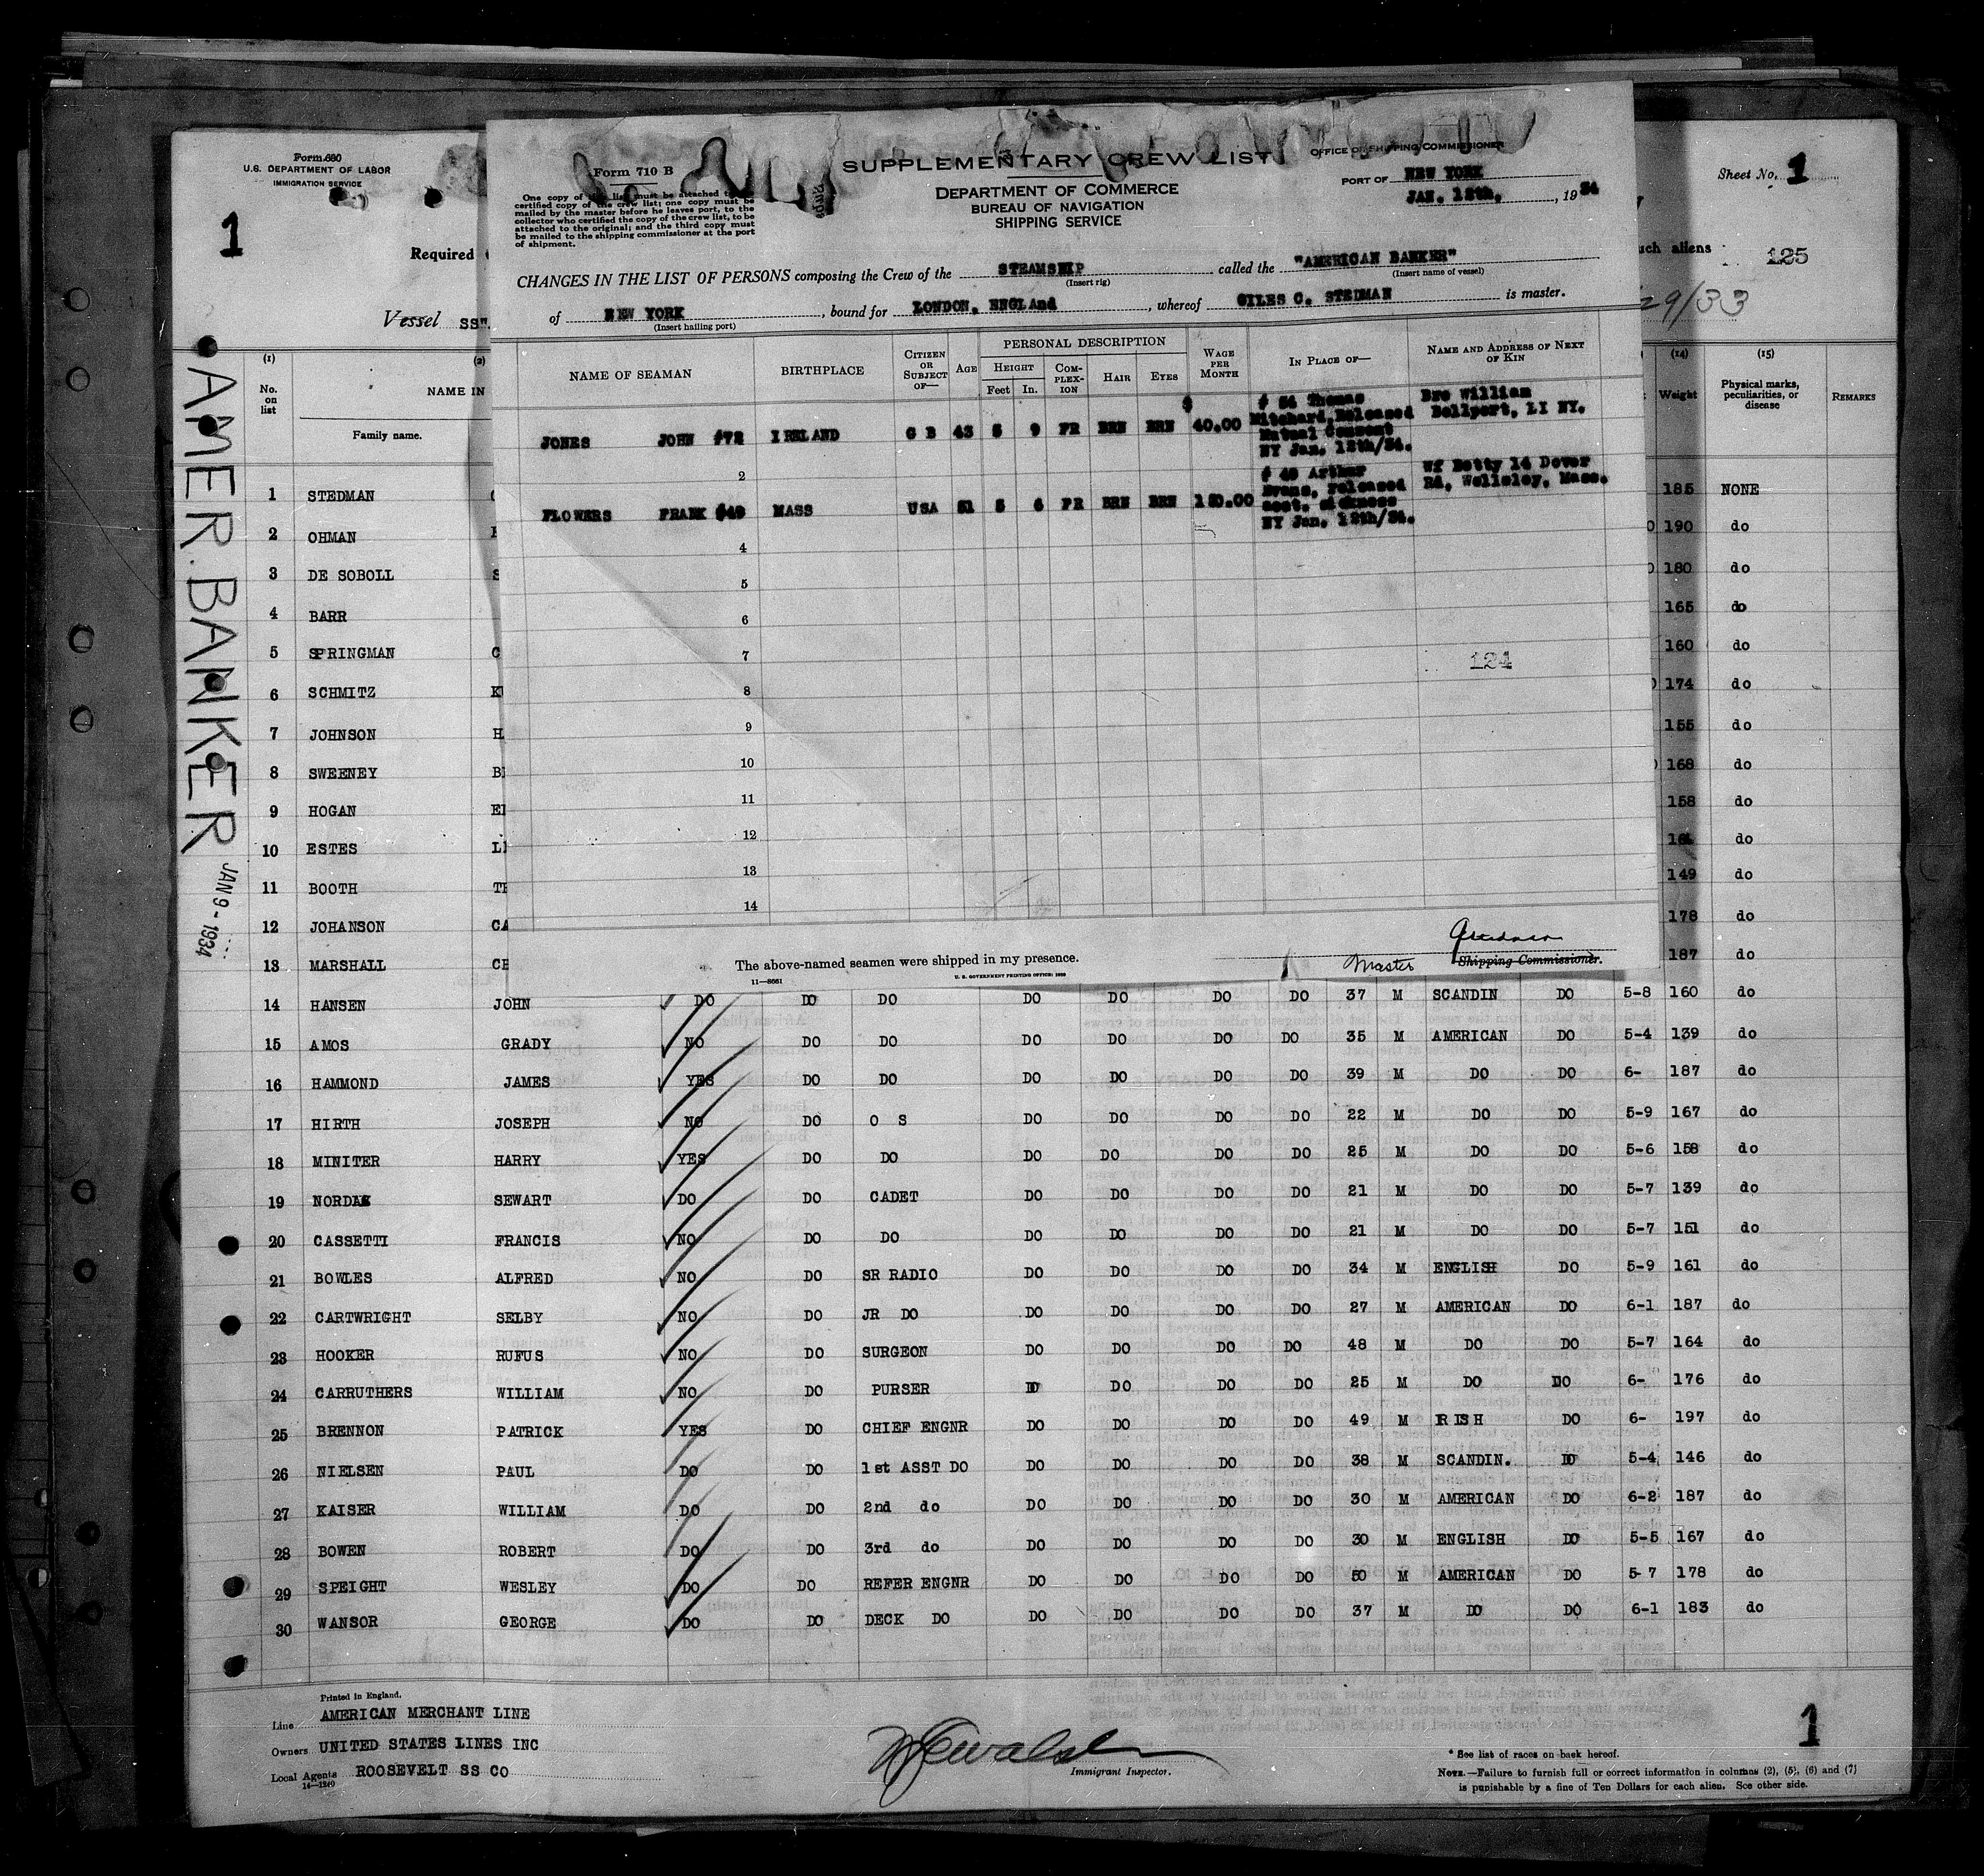 Form 680
U.S. DEPARTMENT OF LABOR
IMMIGRATION SERVICE
1
Required
Vessel SS".
AMER. BANKER
JAN 9 - 1934
Sheet No. 1
such aliens
125
29/33
Form 710 B
One copy of this list must be attached to
certified copy of the crew list; one copy must be
mailed by the master before he leaves port, to the
collector who certified the copy of the crew list, to be
attached to the original; and the third copy must
be mailed to the shipping commissioner at the port
of shipment.
SUPPLEMENTARY CREW LIST
DEPARTMENT OF COMMERCE
BUREAU OF NAVIGATION
SHIPPING SERVICE
OFFICE OF SHIPPING COMMISSIONER
PORT OF NEW YORK
JAN. 12th, , 1934
CHANGES IN THE LIST OF PERSONS composing the Crew of the STEAMSHIP called the "AMERICAN BANKER"
(Insert rig) (Insert name of vessel)
of NEW YORK , bound for LONDON, ENGLAnd , whereof GILES C. STEDMAN is master.
(Insert hailing port)
NAME OF SEAMAN BIRTHPLACE CITIZEN OR SUBJECT OF— AGE PERSONAL DESCRIPTION HEIGHT Feet In. COMPLEXION HAIR EYES WAGE PER MONTH IN PLACE OF— NAME AND ADDRESS OF NEXT OF KIN
JONES JOHN #72 IRELAND G B 43 5 9 FR BRN BRN $ 40.00
# 54 Thomas
Mitchard, Released
Mutual Consent
NY Jan. 12th/34.
Bro William
Bellport, LI NY.
2
FLOWERS FRANK #49 MASS USA 51 5 6 FR BRN BRN 120.00
# 49 Arthur
Evans, released
acct. sickness
NY Jan. 12th/34.
Wf Betty 14 Dover
Rd, Wellsley, Mass.
4
5
6
7
124
8
9
10
11
12
13
14
The above-named seamen were shipped in my presence.
11—8661 U. S. GOVERNMENT PRINTING OFFICE: 1933
Master Shipping Commissioner.
(1) No. on list (2) NAME IN Family name. (14) Weight (15) Physical marks, peculiarities, or disease REMARKS
1 STEDMAN 185 NONE
2 OHMAN 190 do
3 DE SOBOLL S 180 do
4 BARR 165 do
5 SPRINGMAN C 160 do
6 SCHMITZ KU 174 do
7 JOHNSON HA 155 do
8 SWEENEY 168 do
9 HOGAN 158 do
10 ESTES 164 do
11 BOOTH 149 do
12 JOHANSON CA 178 do
13 MARSHALL 187 do
14 HANSEN JOHN DO DO DO DO DO DO DO 37 M SCANDIN DO 5-8 160 do
15 AMOS GRADY NO DO DO DO DO DO DO 35 M AMERICAN DO 5-4 139 do
16 HAMMOND JAMES YES DO DO DO DO DO DO 39 M DO DO 6- 187 do
17 HIRTH JOSEPH NO DO O S DO DO DO DO 22 M DO DO 5-9 167 do
18 MINITER HARRY YES DO DO DO DO DO DO 25 M DO DO 5-6 158 do
19 NORDAK SEWART DO DO CADET DO DO DO DO 21 M DO DO 5-7 139 do
20 CASSETTI FRANCIS NO DO DO DO DO DO DO 21 M DO DO 5-7 151 do
21 BOWLES ALFRED NO DO SR RADIO DO DO DO DO 34 M ENGLISH DO 5-9 161 do
22 CARTWRIGHT SELBY NO DO JR DO DO DO DO DO 27 M AMERICAN DO 6-1 187 do
23 HOOKER RUFUS NO DO SURGEON DO DO DO DO 48 M DO DO 5-7 164 do
24 CARRUTHERS WILLIAM NO DO PURSER DO DO DO DO 25 M DO DO 6- 176 do
25 BRENNON PATRICK YES DO CHIEF ENGNR DO DO DO DO 49 M IRISH DO 6- 197 do
26 NIELSEN PAUL DO DO 1st ASST DO DO DO DO DO 38 M SCANDIN. DO 5-4 146 do
27 KAISER WILLIAM DO DO 2nd do DO DO DO DO 30 M AMERICAN DO 6-2 187 do
28 BOWEN ROBERT DO DO 3rd do DO DO DO DO 30 M ENGLISH DO 5-5 167 do
29 SPEIGHT WESLEY DO DO REFER ENGNR DO DO DO DO 50 M AMERICAN DO 5-7 178 do
30 WANSOR GEORGE DO DO DECK DO DO DO DO DO 37 M DO DO 6-1 183 do
Printed in England.
Line AMERICAN MERCHANT LINE
Owners UNITED STATES LINES INC
Local Agents ROOSEVELT SS CO
14—1240
Immigrant Inspector.
1
* See list of races on back hereof.
NOTE.—Failure to furnish full or correct information in columns (2), (5), (6) and (7)
is punishable by a fine of Ten Dollars for each alien. See other side.